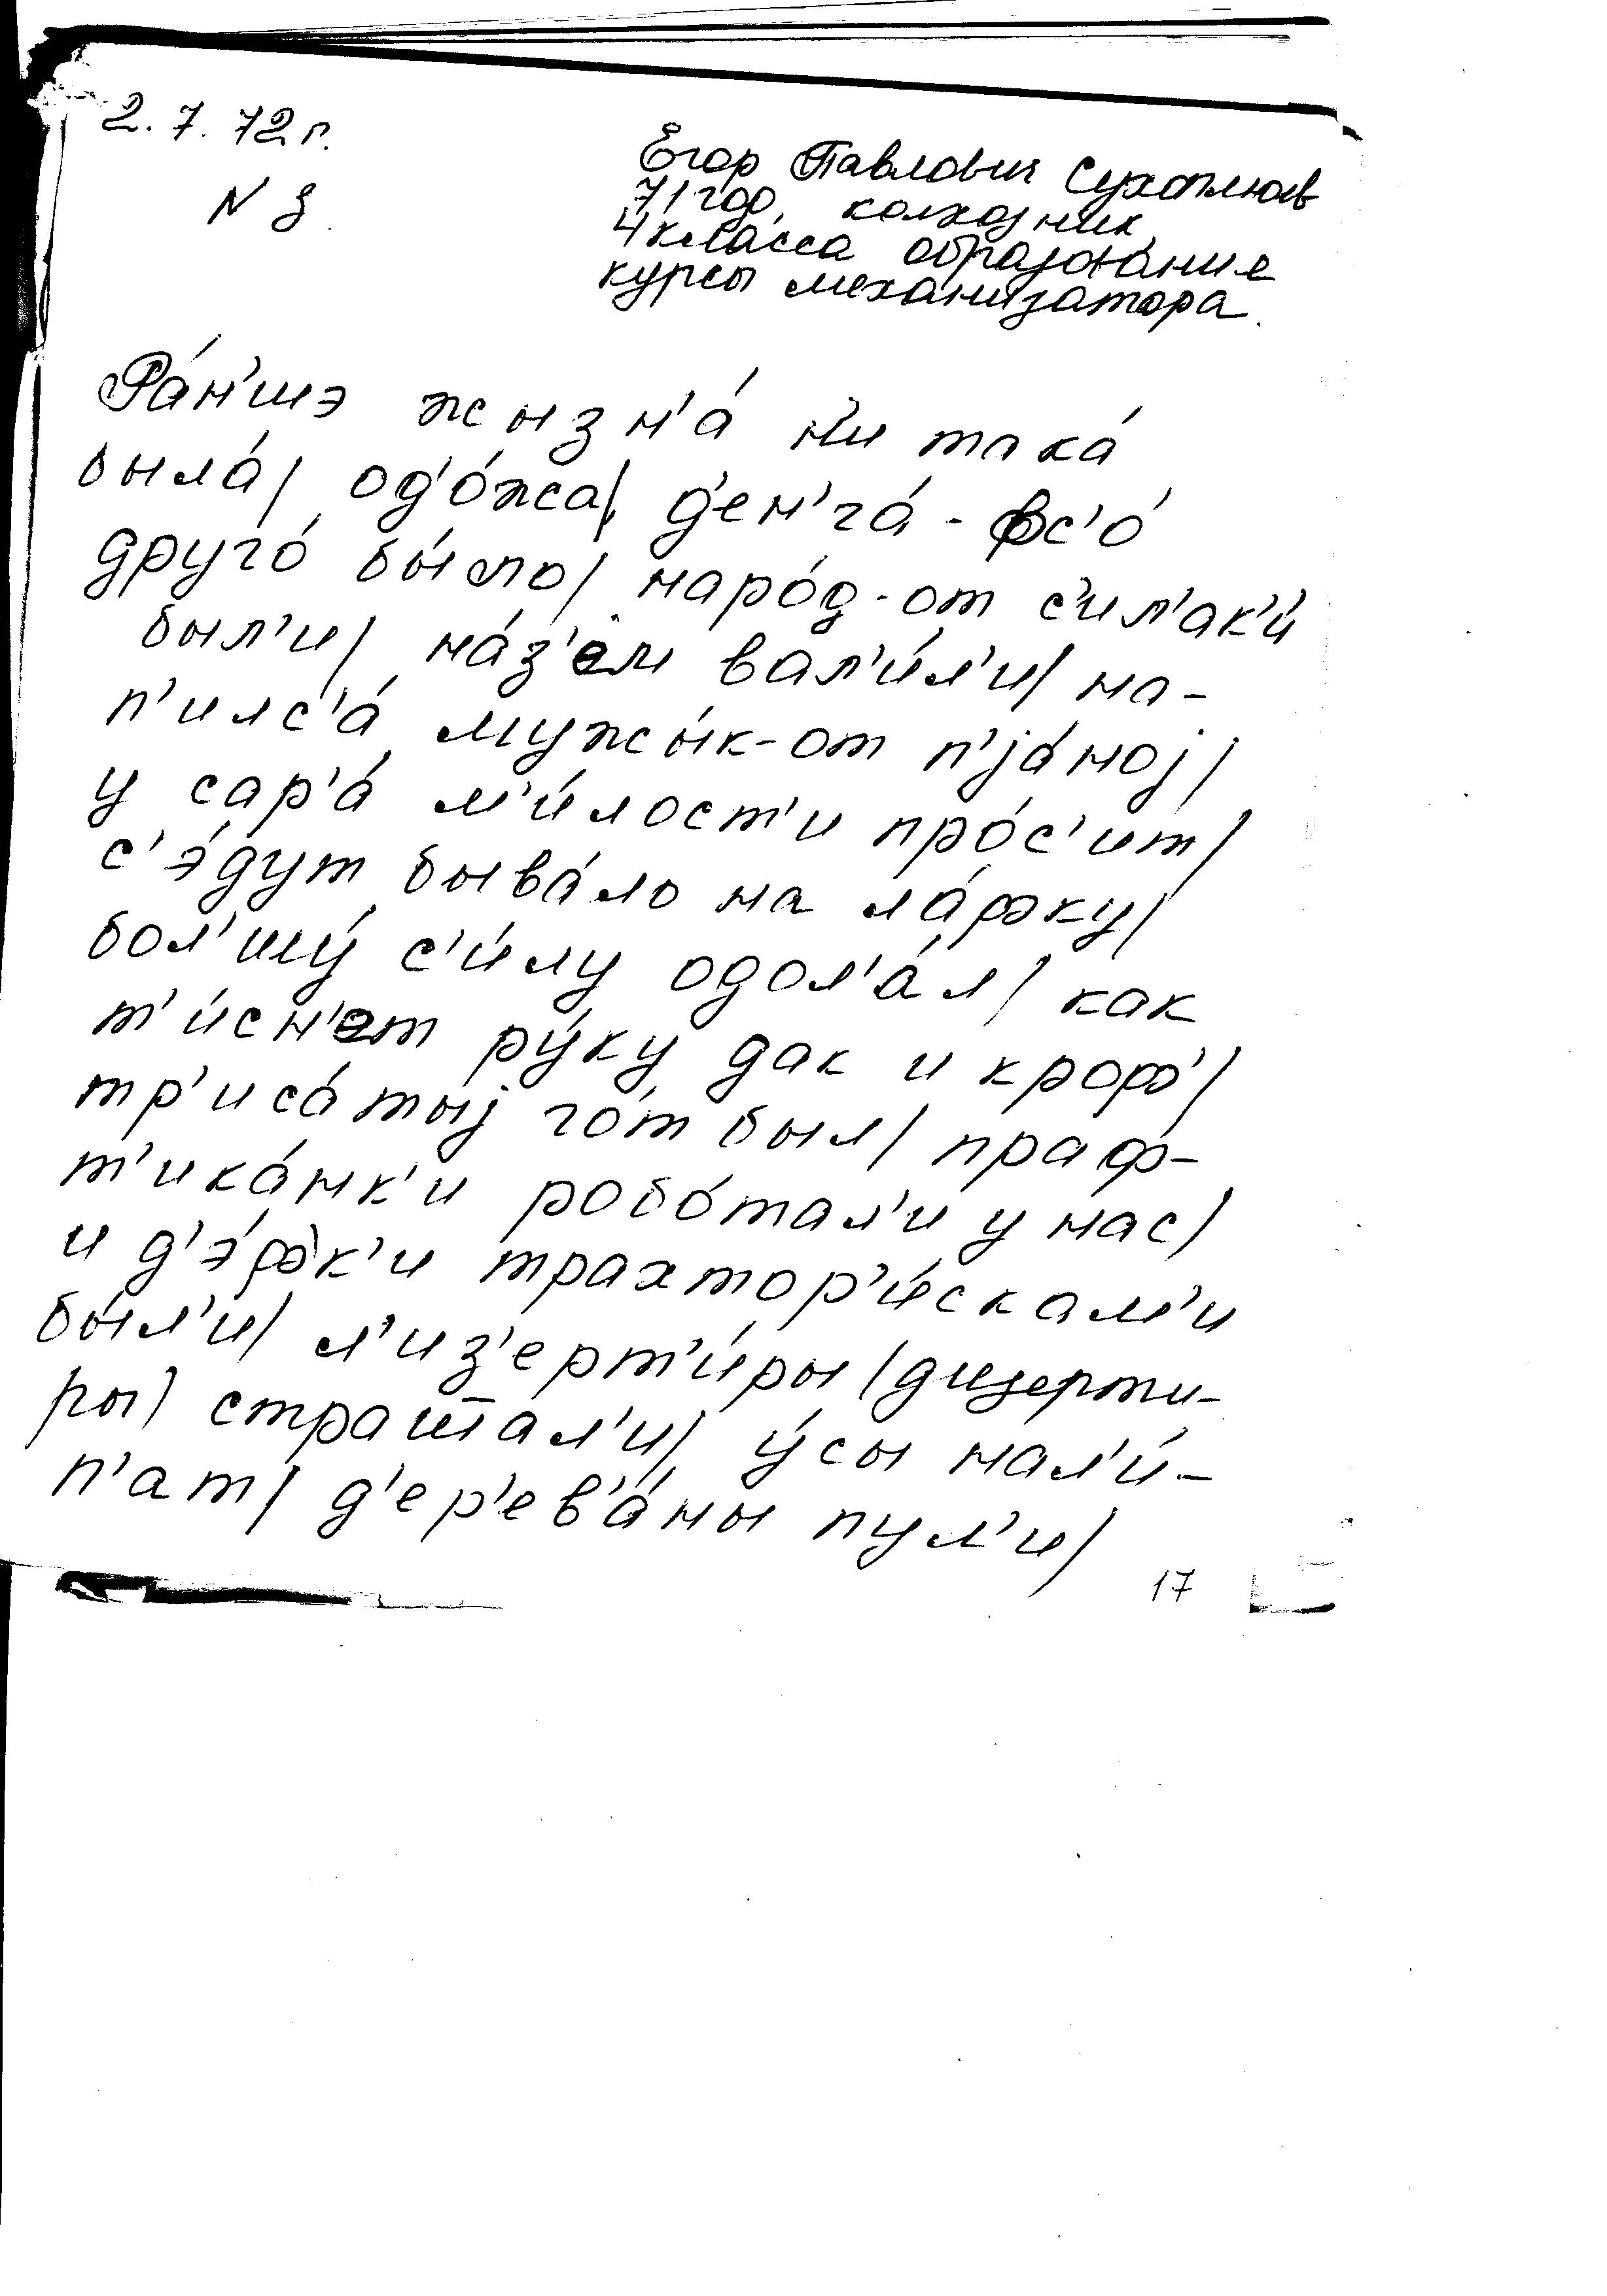 2.7.72 г.
N 8.
Егор Павлович
71 год, колхозник,
4 класса образование
курсы механизатора.
Ра́н'шэ жызн'а́ ни така́
была́/ од'о́жа/, д'ен'га́ - вс'о́
друго́ бы́ло/ наро́д-от с'ил'ак'и́
был'и/ на́з'ом вал'и́л'и/ на-
п'илс'а́ мужы́к-от п'jа́ной/
у сар'а́ м'и́лост'и про́с'ит/
с'э́дут быва́ло на ла́фку/
бол'шу́ с'и́лу одол'а́л/ как
т'и́сн'ет ру́ку дак и кроф'/
тр'иса́тыj го́т был/ праф-
т'ика́нк'и робо́тал'и у нас/
и д'э́фк'и трахтор'и́скам'и
бы́л'и/ л'из'ерт'и́ры (дизерти-
ры) страшшал'и/ у́сы нал'и́-
п'ат/ д'ер'ев'а́ны пул'и/
17